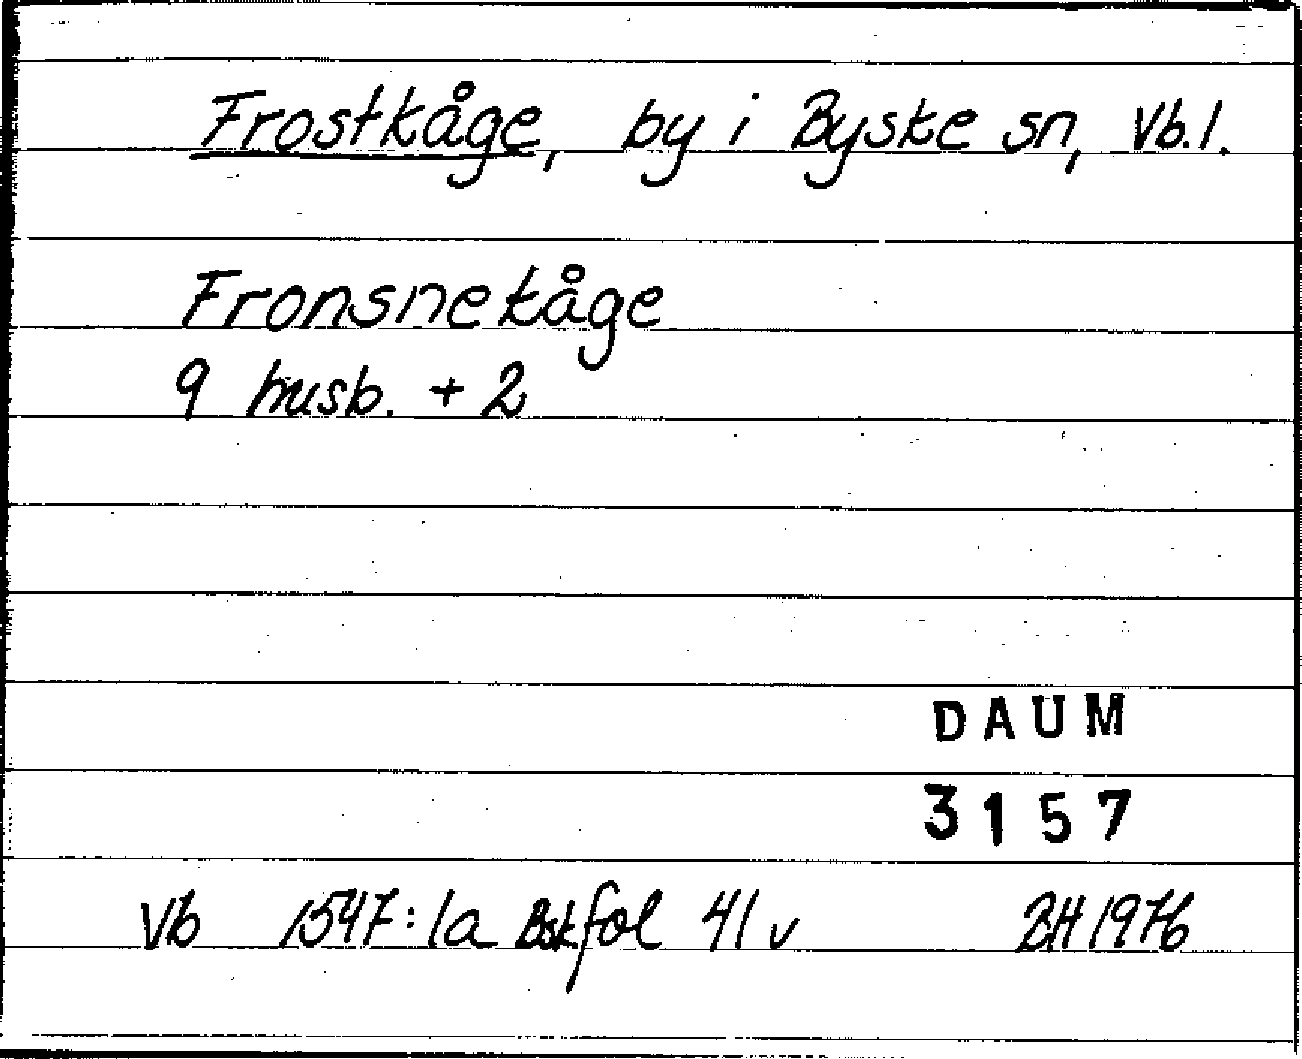 Frostkåge, by i Byske sn, Vb.l.
Fronsnekåge
9 husb. + 2
DAUM
3157
Vb 1547:1a Bskfol 41 v BH 1976